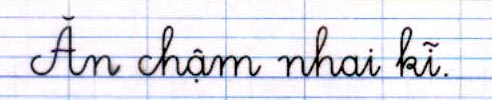 Ăn chậm nhai kĩ.